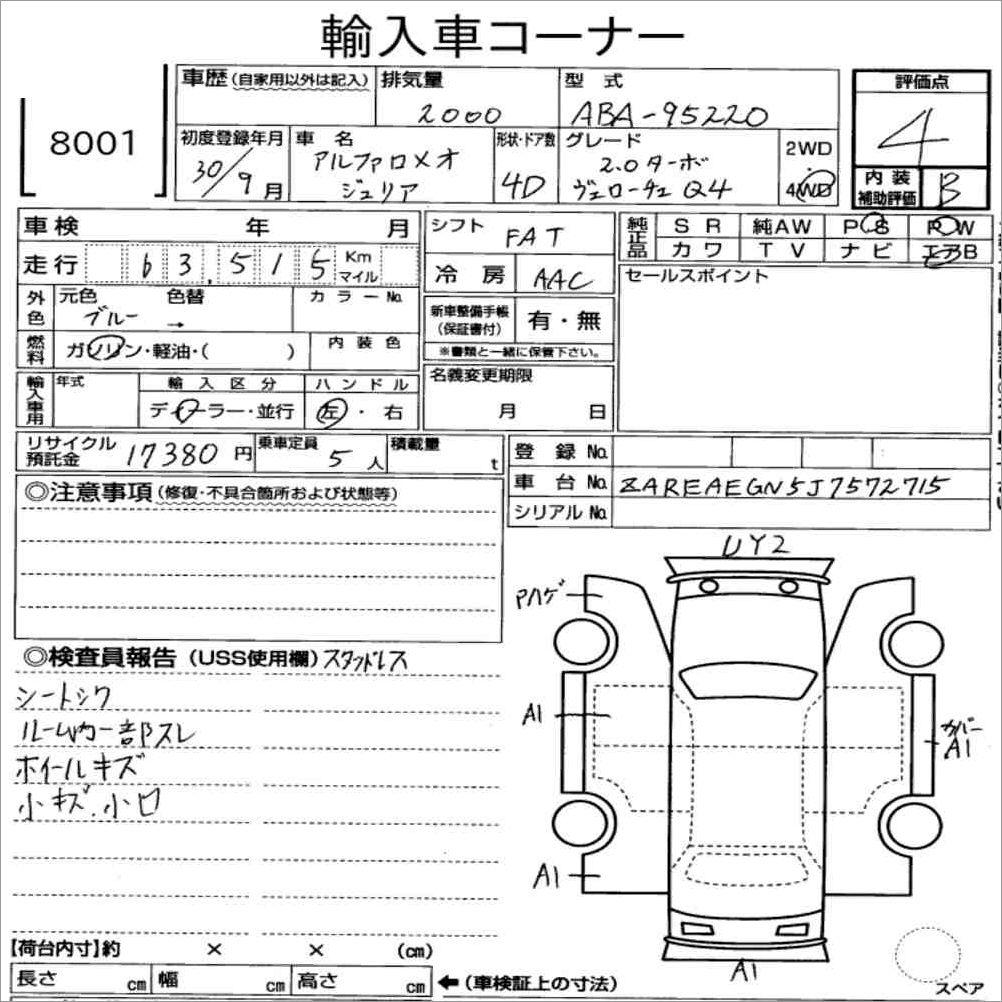 輸入車コーナー
8001
車歴(自家用以外は記入) 排気量 2000 型式 ABA-95220 評価点 4
初度登録年月 30/9月 車名 アルファロメオ ジュリア 形状・ドア数 4D グレード 2.0ターボ ヴェローチェ Q4 2WD 4WD 内装補助評価 B
車検 年 月 シフト FAT 純正品 SR 純AW PS PW
走行 63,515 Km マイル 冷房 AAC カワ TV ナビ エアB
外色 元色 ブルー 色替 → カラーNo. 新車整備手帳(保証書付) 有・無 セールスポイント
※書類と一緒に保管下さい。
燃料 ガソリン・軽油・( ) 内装色
輸入車用 年式 輸入区分 ハンドル 名義変更期限
ディーラー・並行 左・右 月 日
リサイクル預託金 17380円 乗車定員 5人 積載量 t 登録No.
車台No. ZAREAEGN5J7572715
シリアルNo.
◎注意事項(修復・不具合箇所および状態等)
UY2
Pハゲ
◎検査員報告(USS使用欄)スタッドレス
シートシワ
ルーム内一部スレ
ホイールキズ
小キズ、小凹
A1
カバー
A1
A1
A1
【荷台内寸】約 × × (cm)
長さ cm 幅 cm 高さ cm ←(車検証上の寸法)
スペア